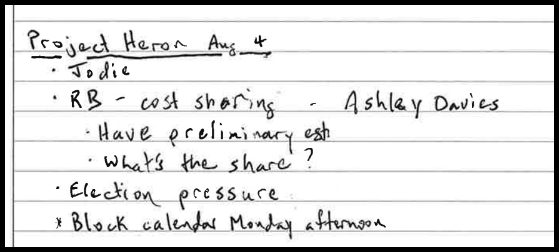 Project Heron Aug 4
· Jodie
· RB - cost sharing - Ashley Davies
· Have preliminary est
· What's the share?
· Election pressure
* Block calendar Monday afternoon